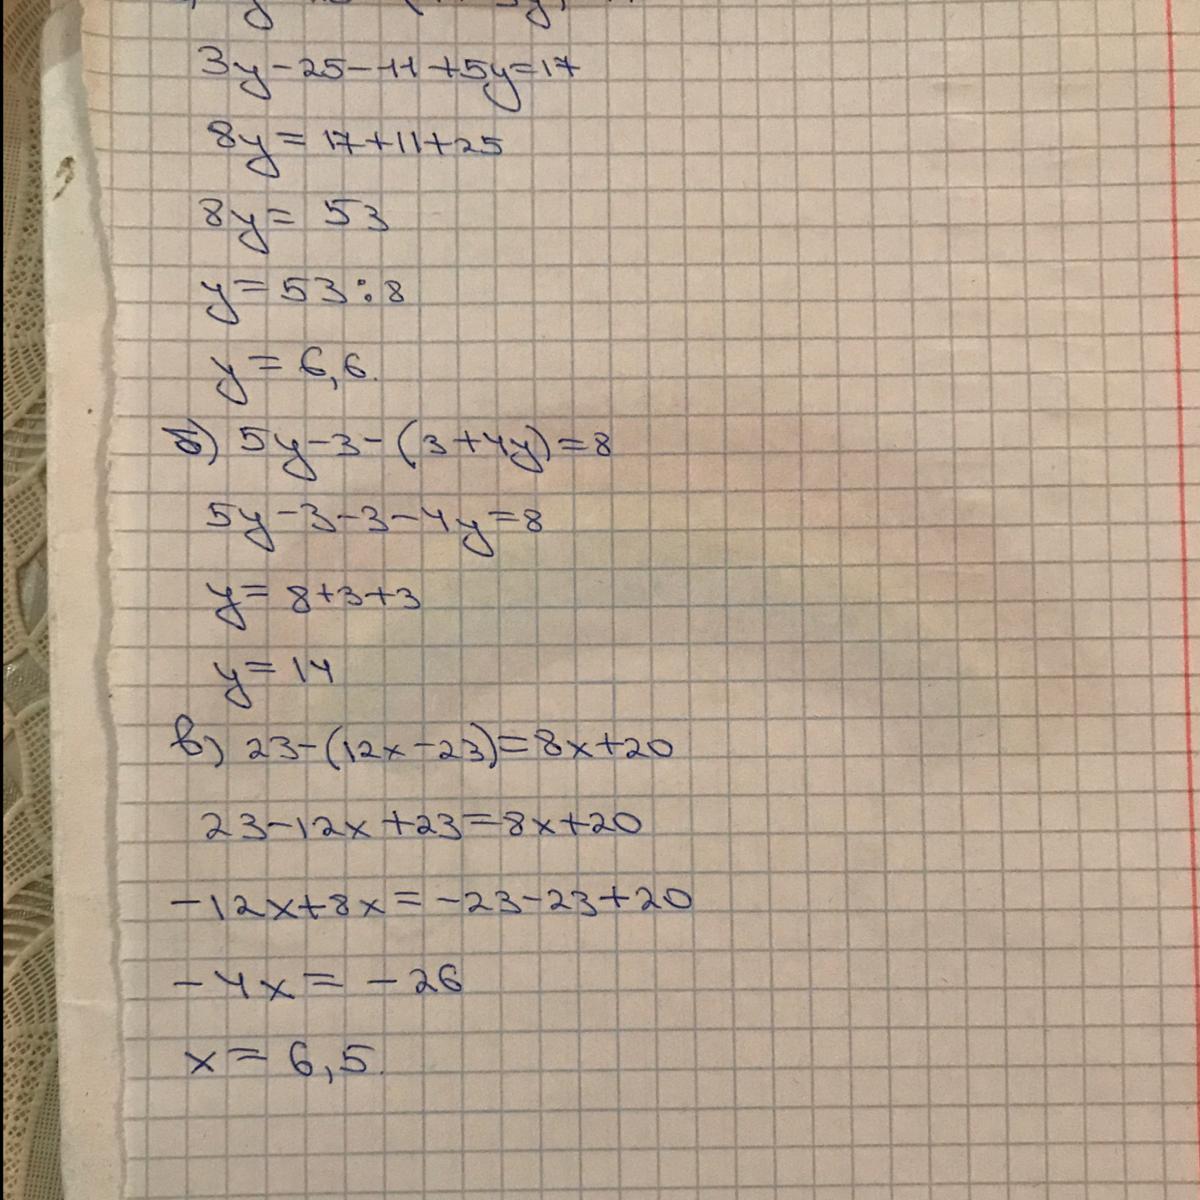 3y-25-11+5y=17
8y=17+11+25
8y=53
y=53:8
y=6,6.
б) 5y-3-(3+4y)=8
5y-3-3-4y=8
y=8+3+3
y=14
в) 23-(12x-23)=8x+20
23-12x+23=8x+20
-12x+8x=-23-23+20
-4x=-26
x=6,5.